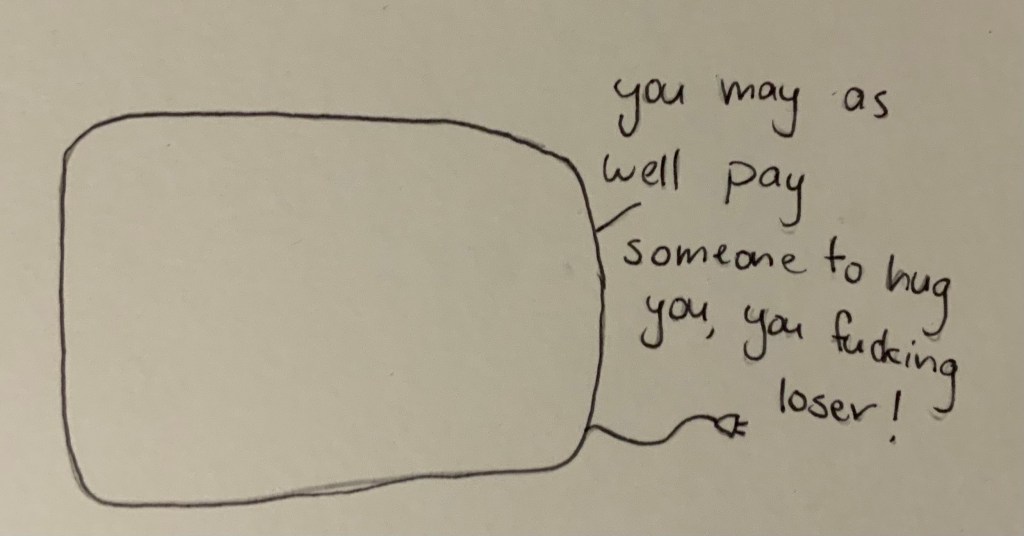 you may as
well pay
someone to hug
you, you fucking
loser!